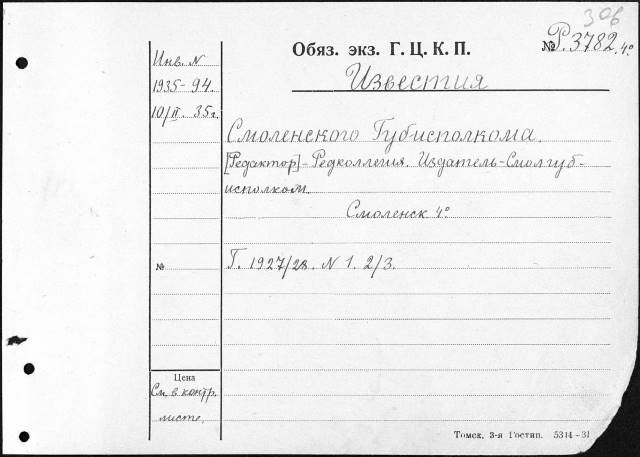 306
Обяз. экз. Г. Ц. К. П.
№ Р. 3782. 4°
Известия
Инв. N
1935-94.
10/II. 35г.
Смоленского Губисполкома.
[Редактор]-Редколлегия. Издатель-Смолгуб-
исполком.
Смоленск 4°
№
Г. 1927/28. N 1. 2/3.
Цена
См. в контр.
листе.
Томск, 3-я Гостип. 5314-31